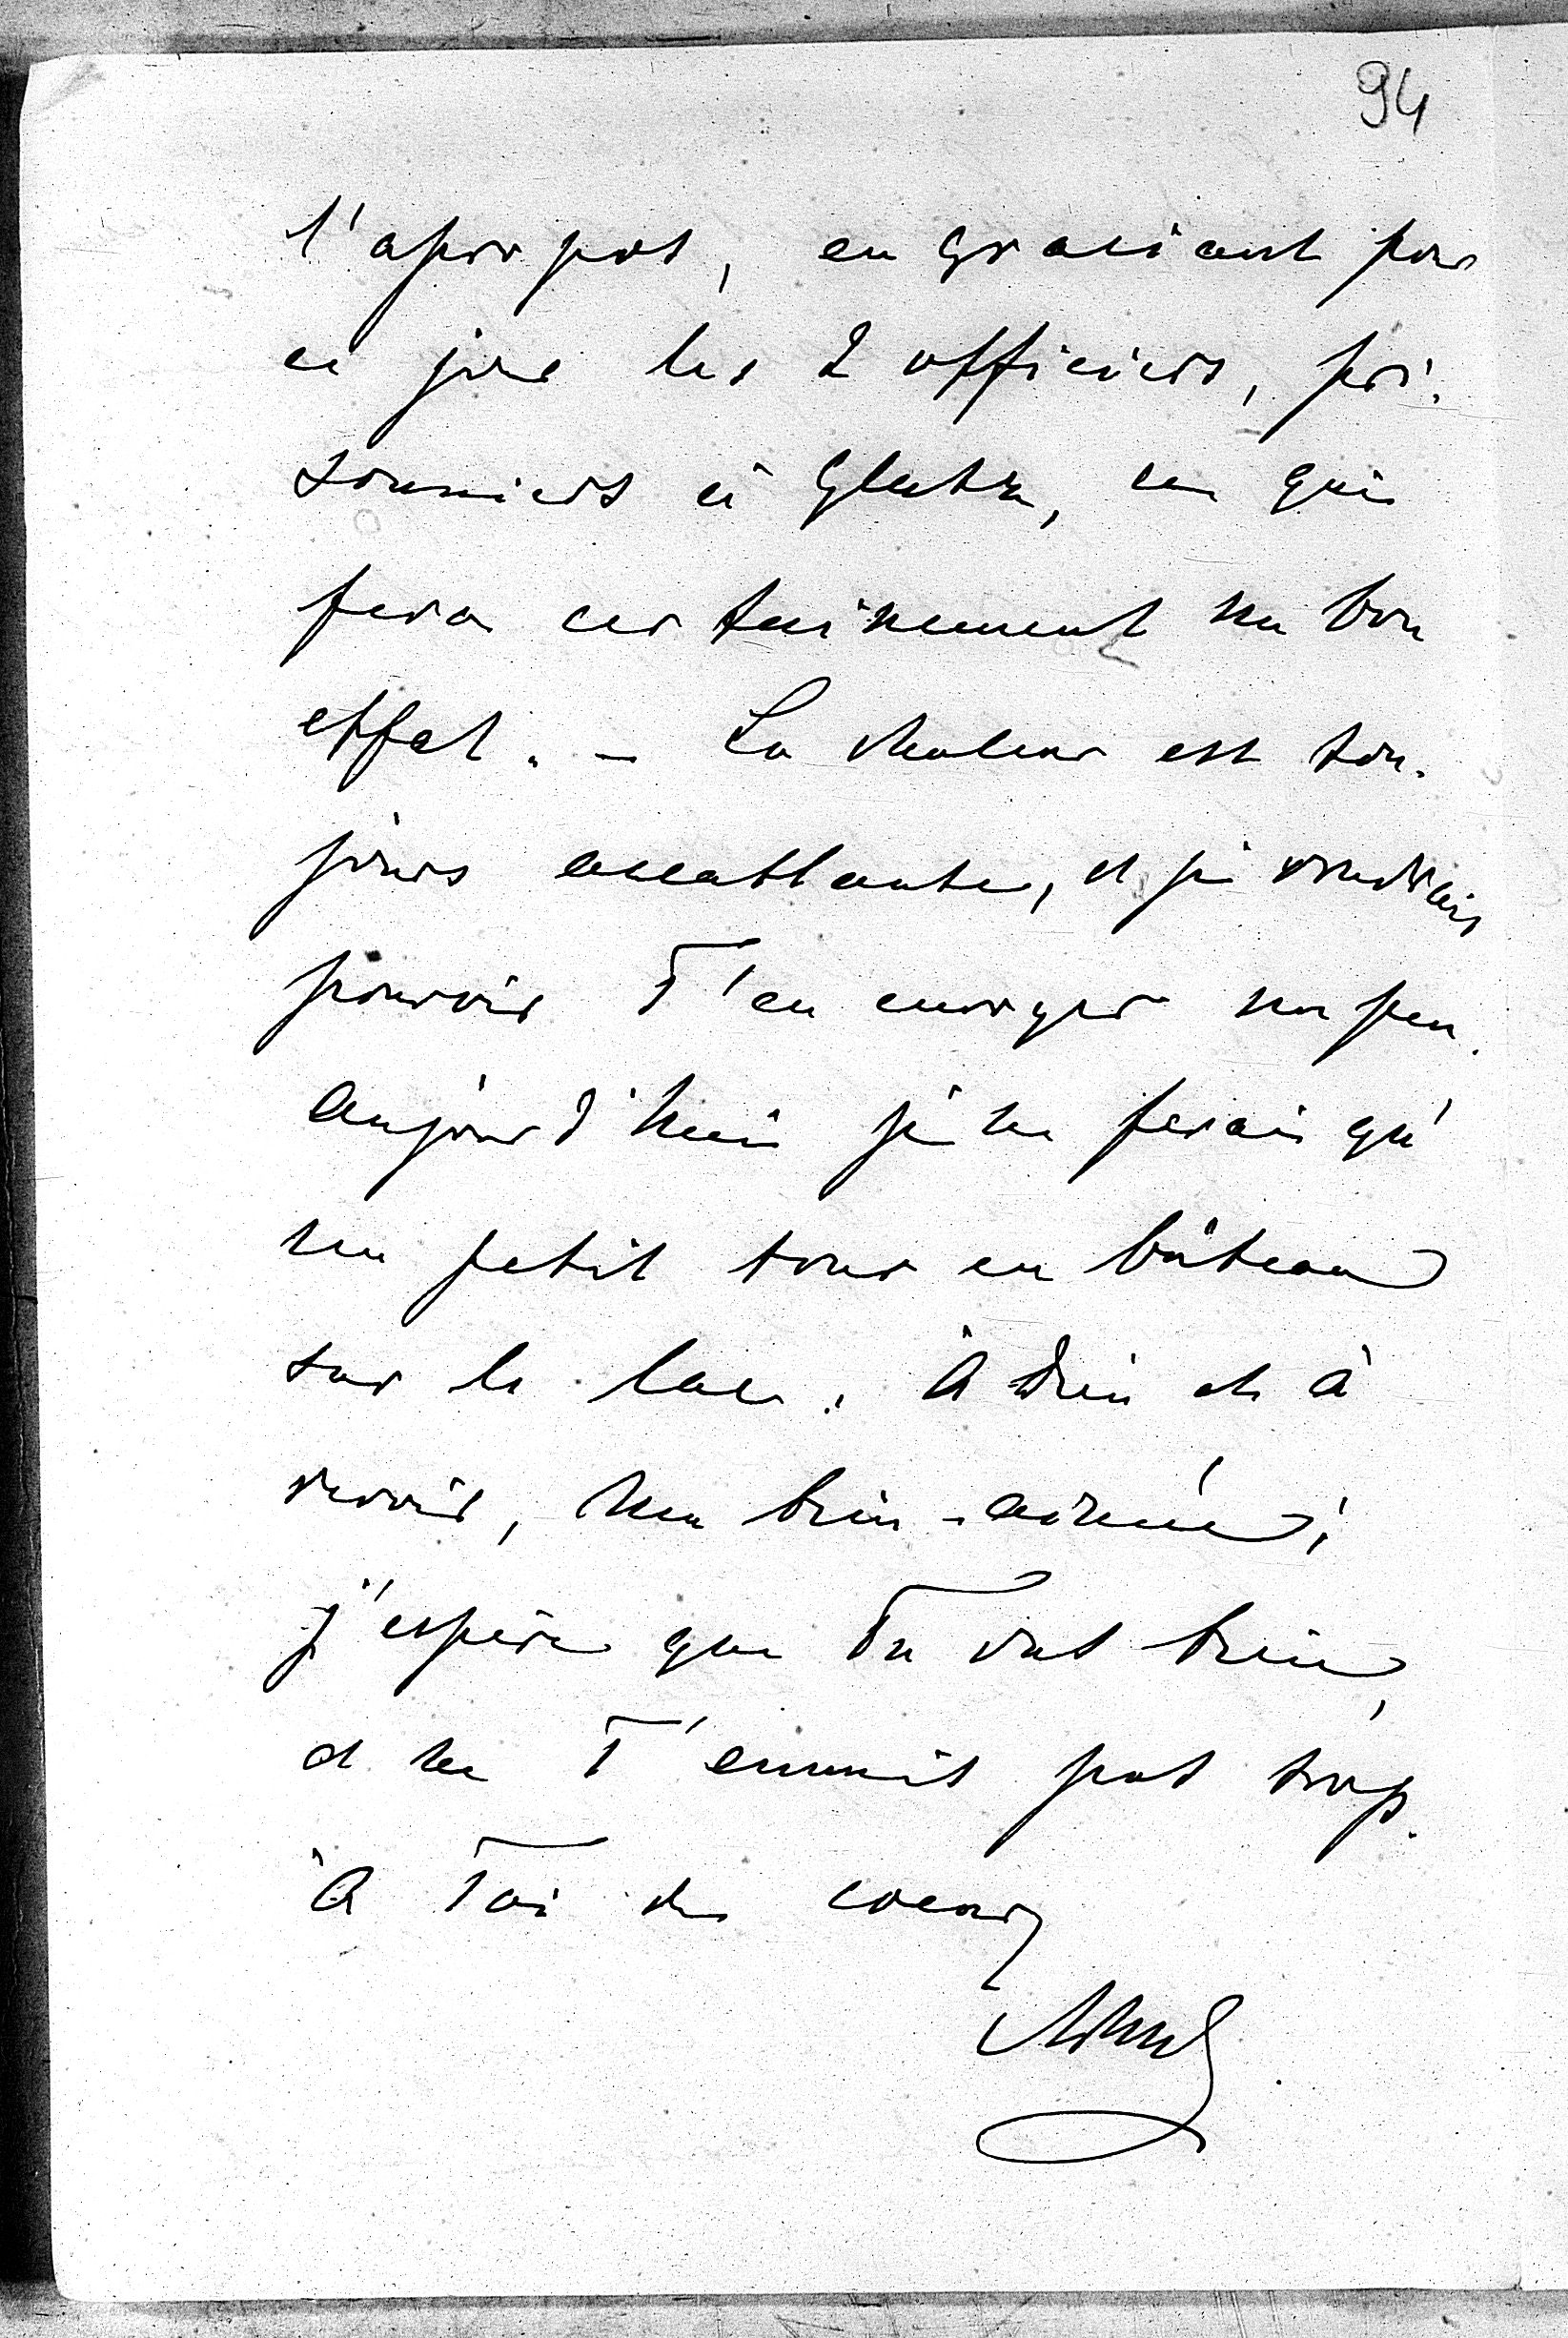 94
l'apropos, en graciant pour
ce jour les 2 officiers, pri-
sonniers à Glatz, ce qui
fera certainement un bon
effet. – La chaleur est tou-
jours accablante, et je voudrais
pouvoir T'en envoyer un peu.
aujourd'hui je ne ferai qu'
un petit tour en bâteau
sur le lac. À Dieu et à
revoir, ma bien-aimée;
j'espère que Tu vas bien,
et ne T'ennuis pas trop.
À Toi de coeur